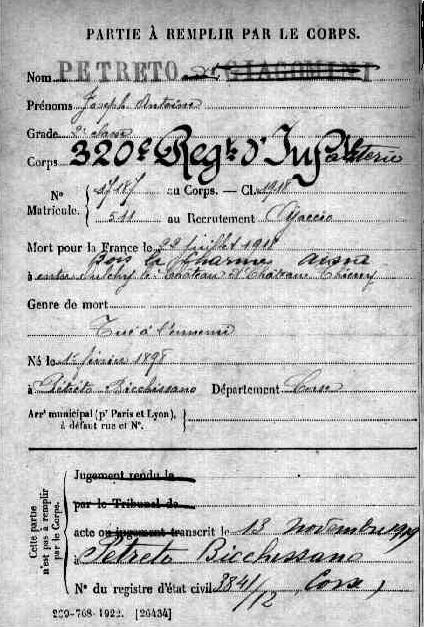 PARTIE À REMPLIR PAR LE CORPS.
Nom PETRETO dit GIACOMINI
Prénoms Joseph Antoine
Grade 2e classe
Corps 320e Regt d'Infanterie
N° Matricule. { 17187 au Corps. — Cl. 1918
511 au Recrutement Ajaccio
Mort pour la France le 22 juillet 1918
Bois la Charmes Aisne
à entre Oulchy le Château et Château Thierry
Genre de mort
Tué à l'ennemi
Né le 1er février 1898
à Pétréto Bicchisano Département Corse
Arr' municipal (p' Paris et Lyon),
à défaut rue et N°.
Cette partie n'est pas à remplir par le Corps.
Jugement rendu le
par le Tribunal de
acte ou jugement transcrit le 13 novembre 1919
à Petreto Bicchissano
N° du registre d'état civil 3841/12 Corse
229-768-1922. [26434]